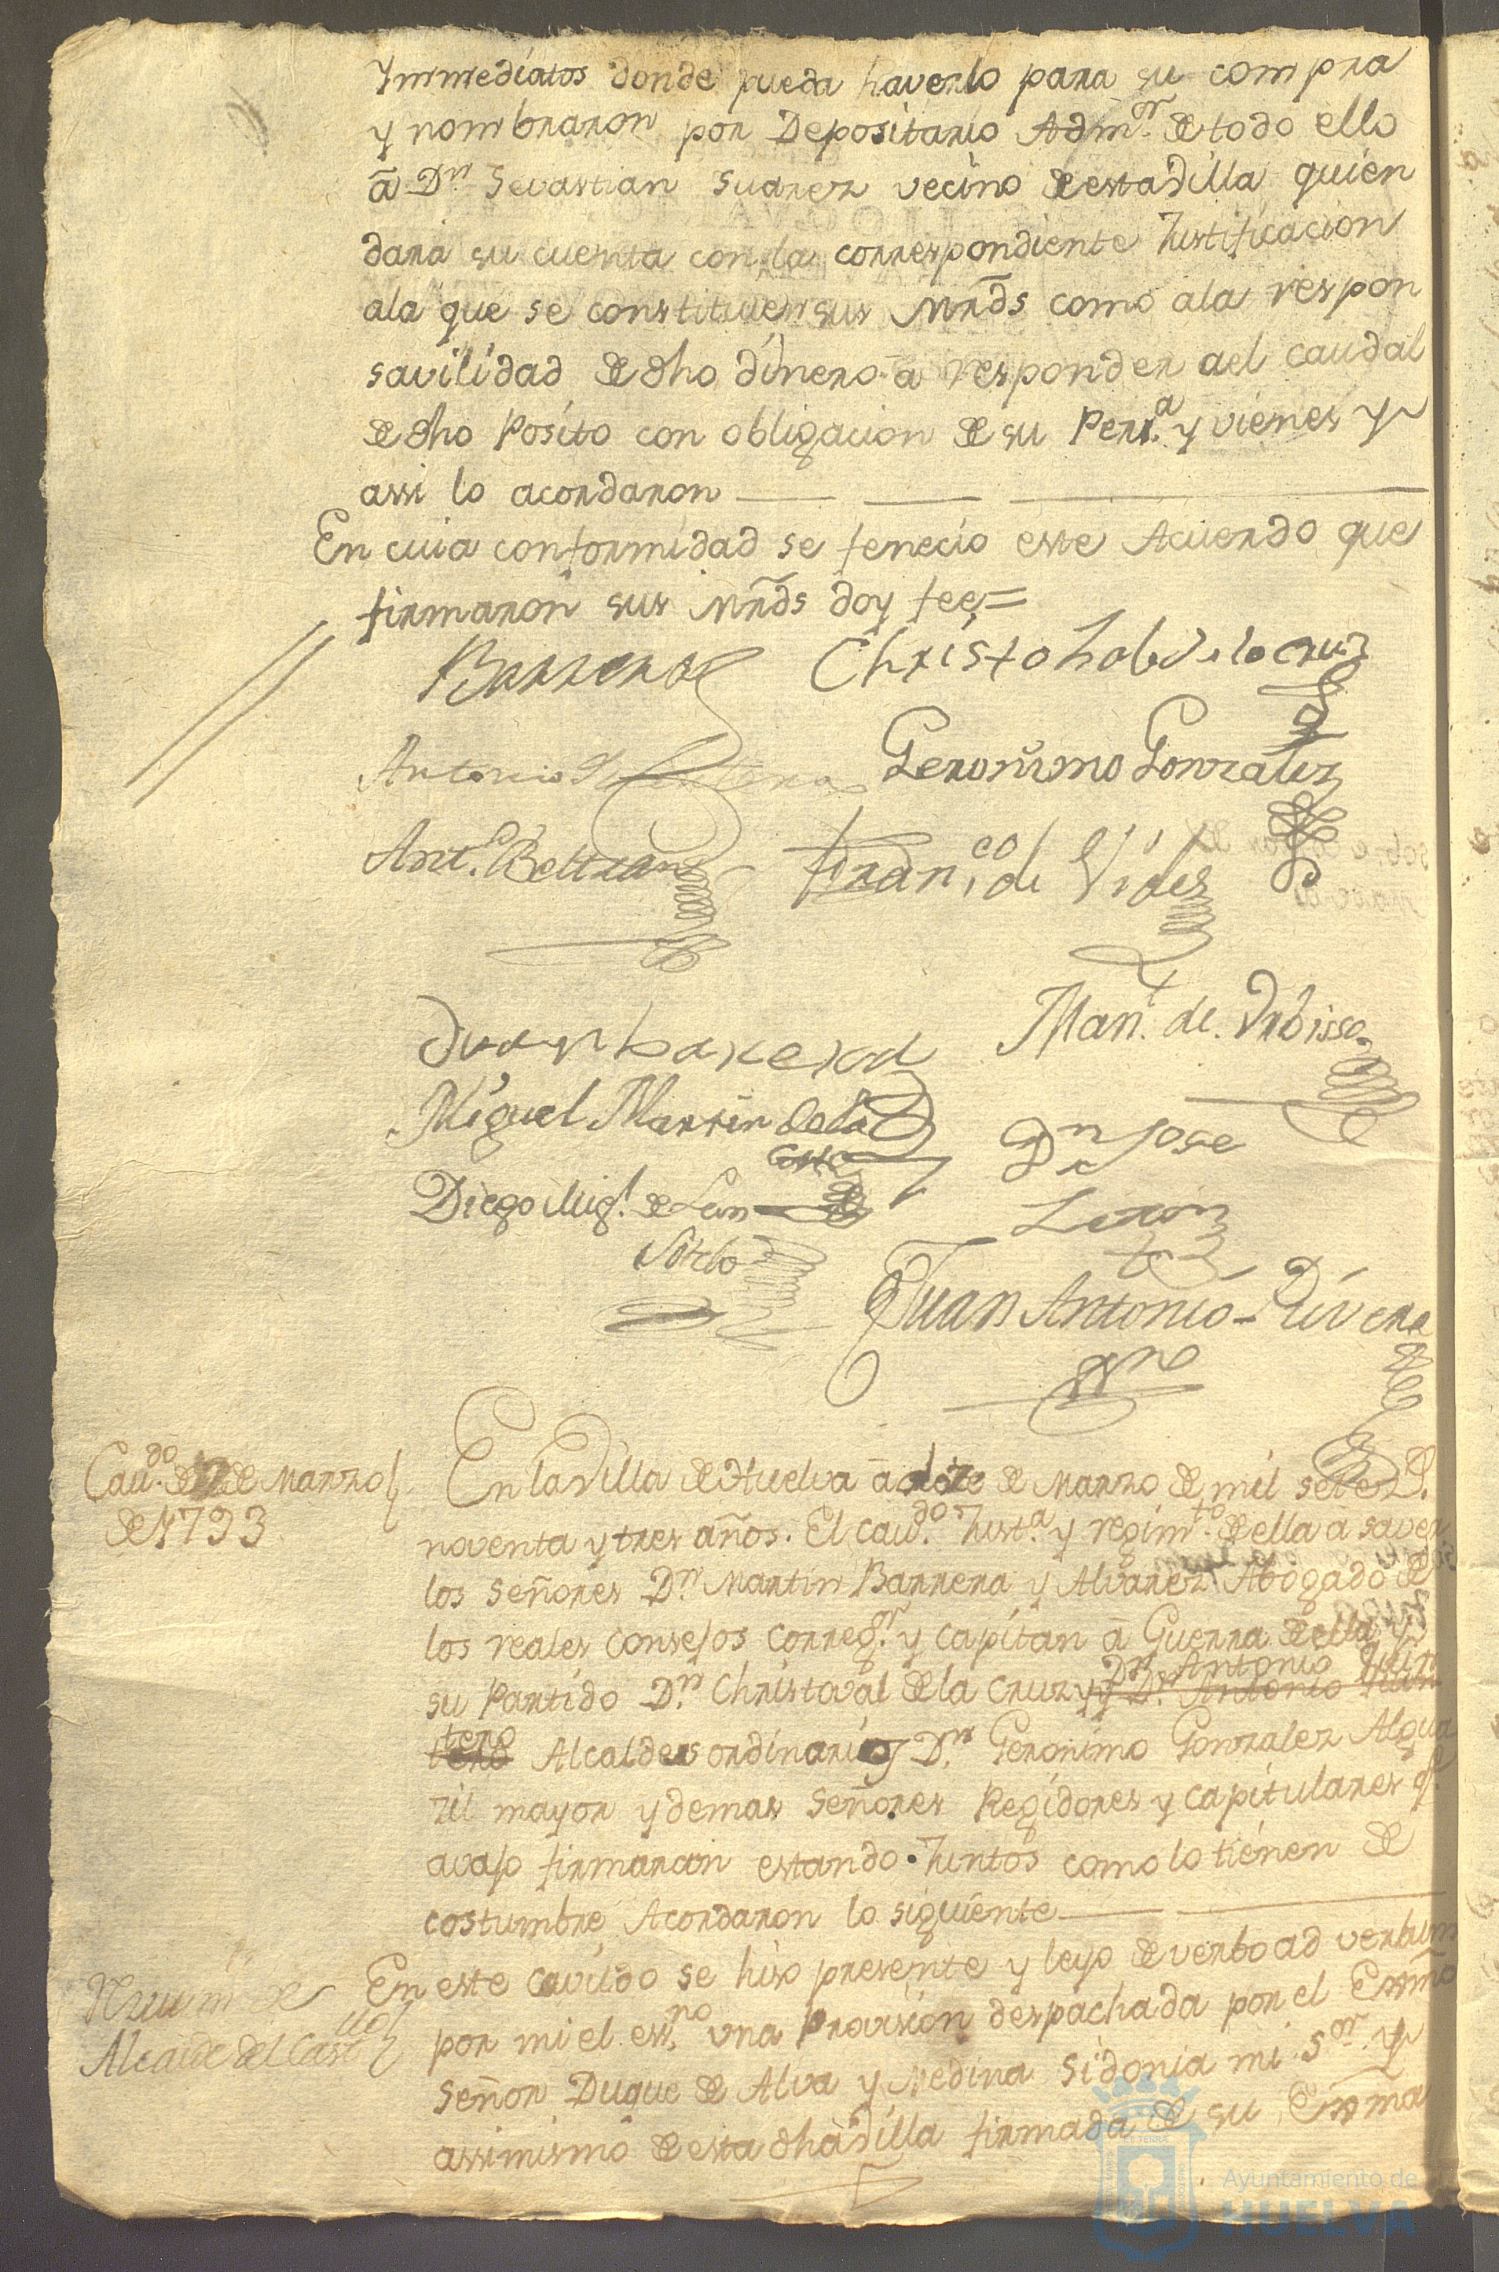 Ynmediatos donde pueda haverlo para su compra
y nombraron por Depositario Adm.or de todo ello
a Dn. Sevastian Suarez vecino de esta Villa quien
dara su cuenta con la correspondiente Justificacion
ala que se constituien sus Mrds como ala respon
savilidad de dho dinero a responder ael caudal
de dho Posito con obligacion de su Pers.a y vienes y
assi lo acordaron
En cuia conformidad se fenecio este Acuerdo que
firmaron sus Mrds doy fee=
Barrera Christobal de la Cruz
Antonio Quintero Geronimo Gonzalez
Ant.o Beltran Fran.co de Vides
Juan barera Man.l de Urbisse
Miguel Martin de la Dn Jose
Diego Mig.l de Leon
Sotelo
Juan Antonio Rivera
Cav.do de 12 de Marzo
de 1793
En la Villa de Huelva a doze de Marzo de mil sete.s
noventa y tres años. El cav.do Just.a y regim.to de ella a saver
los Señores Dn. Martin Barrera y Alvarez Abogado de
los reales consejos correg.or y capitan a Guerra de ella y
su Partido Dn. Christoval de la Cruz y Dn Antonio Quin
tero Alcaldes ordinarios Dn. Geronimo Gonzalez Algua
zil mayor y demas Señores Regidores y capitulares q.e
avajo firmaran estando Juntos como lo tienen de
costumbre Acordaron lo siguiente
Nruum.to de
Alcaide del Cast.llo
En este cavildo se hiso presente y leyo de verbo ad verbum
por mi el ess.no una Provision despachada por el Exmo
Señor Duque de Alva y Medina Sidonia mi S.or y
assimismo de esta dha Villa firmada de su Exma
Ayuntamiento de
HUELVA